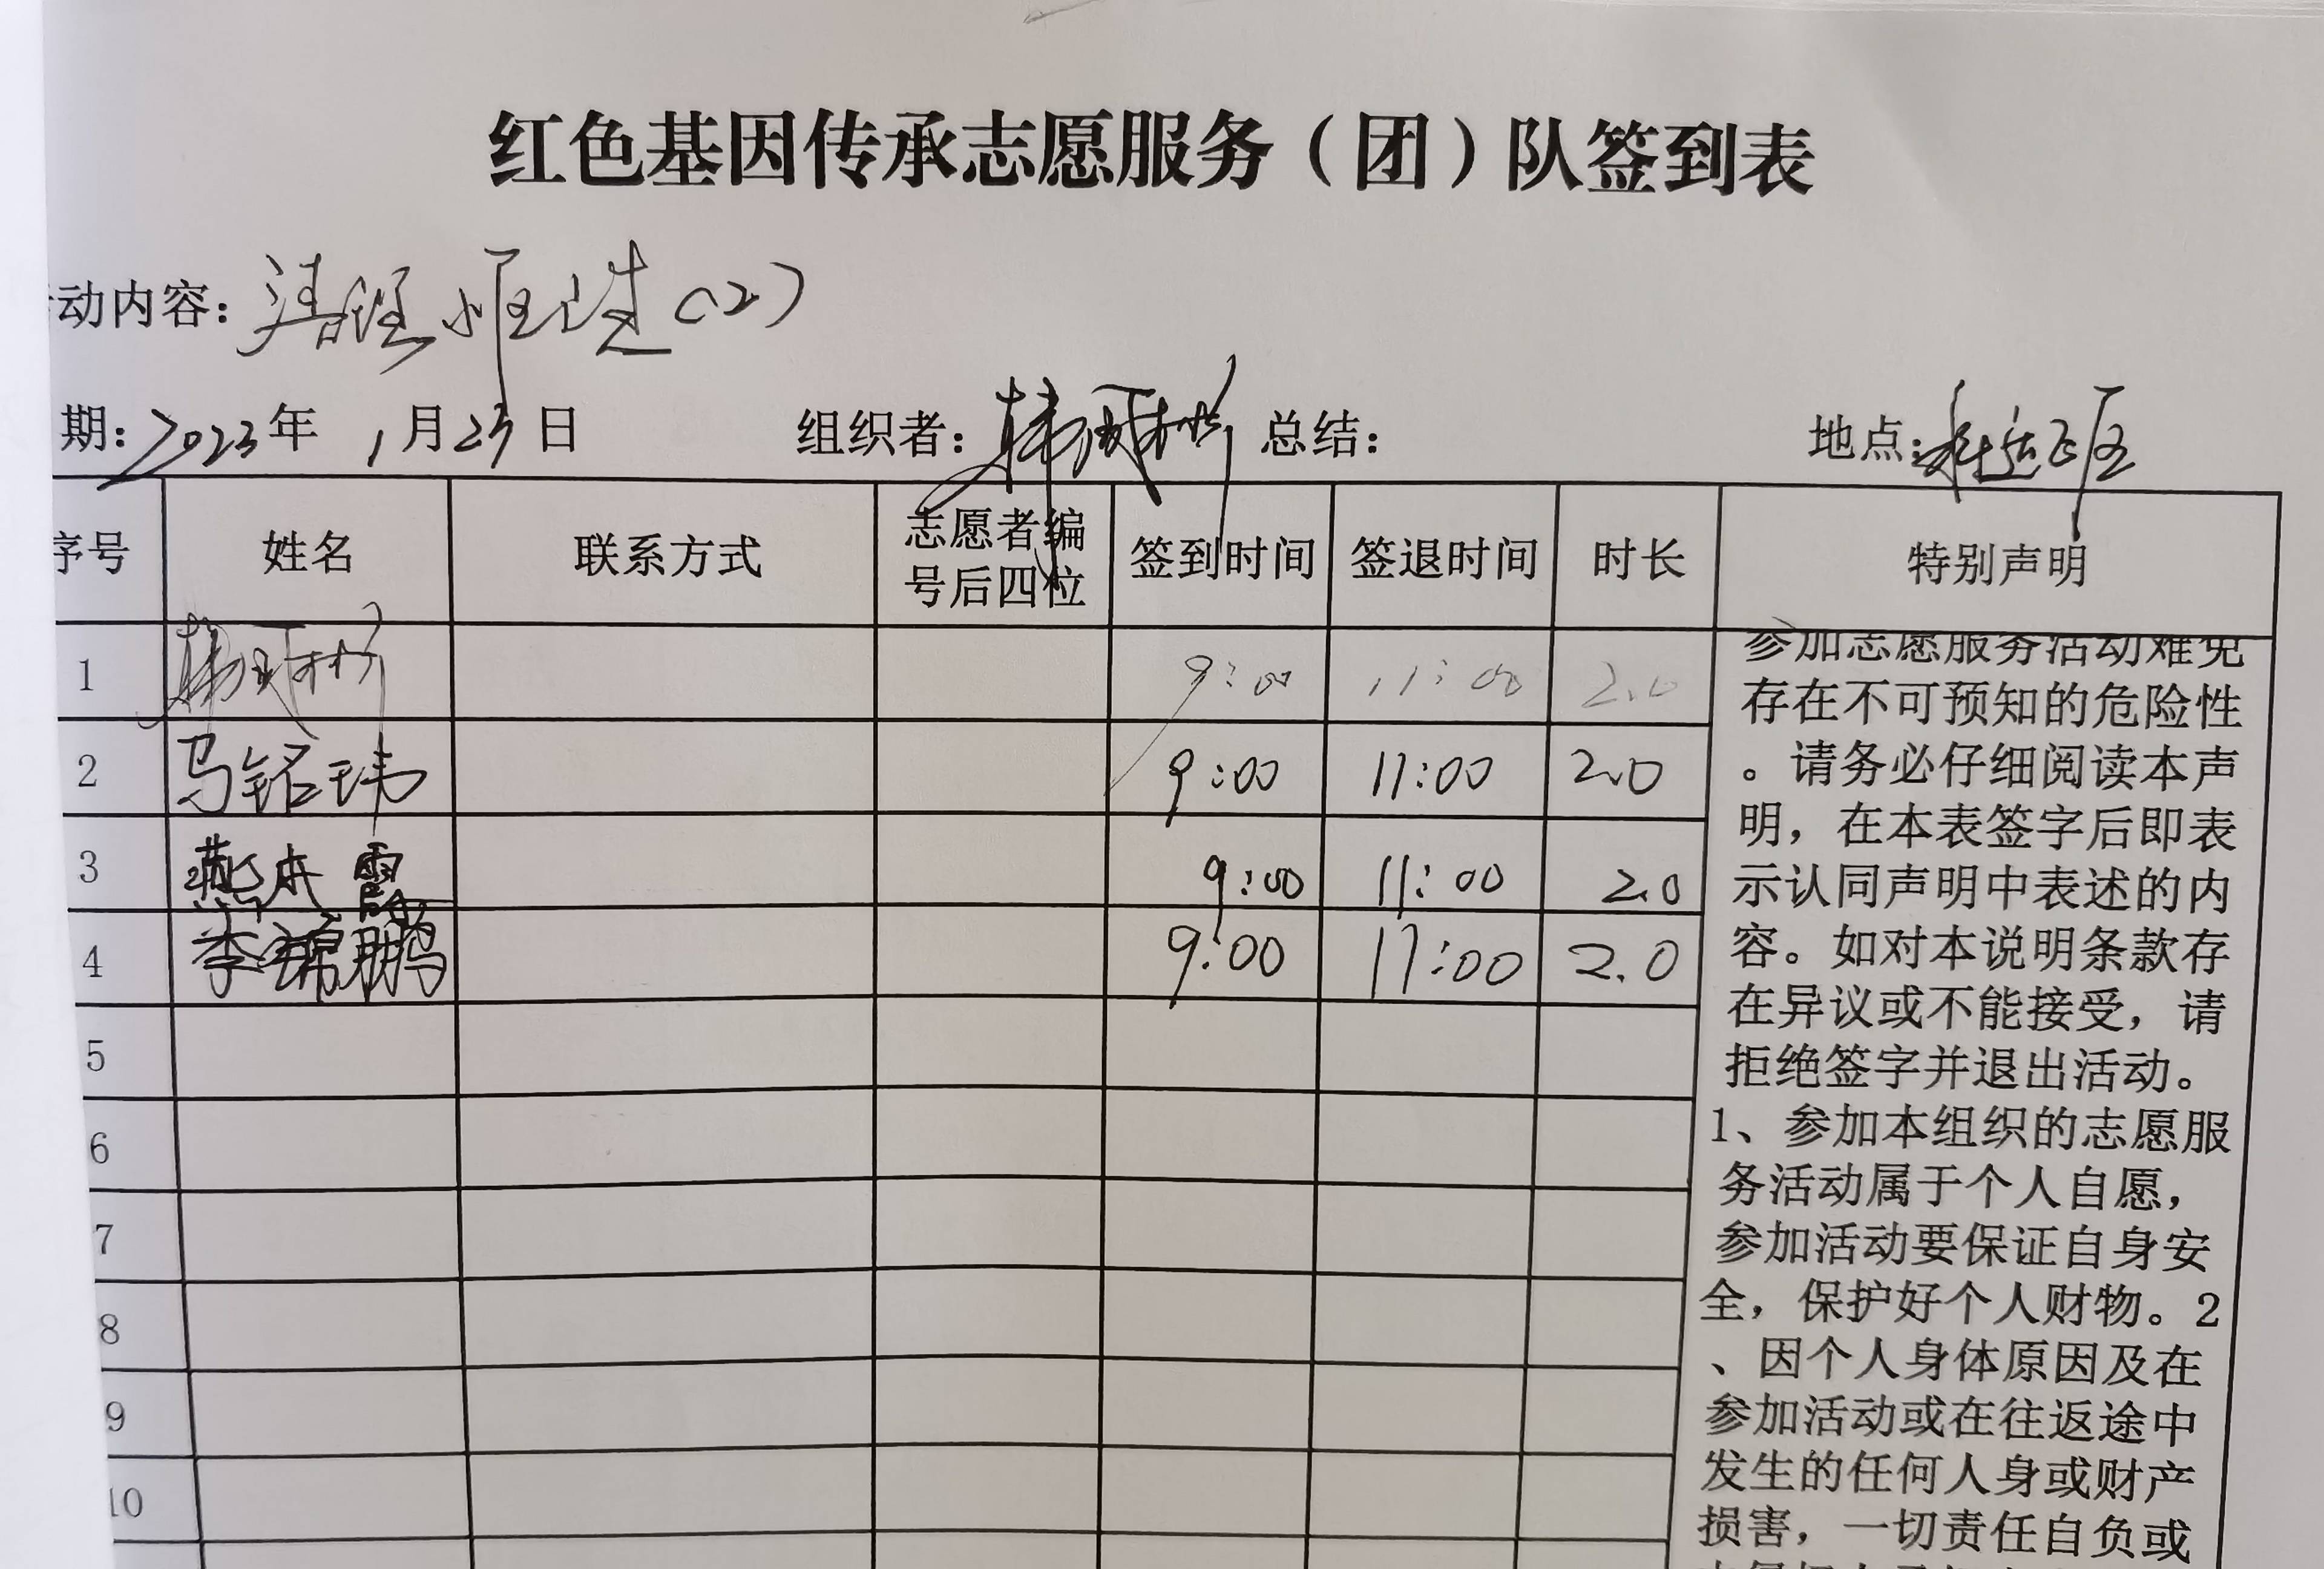 红色基因传承志愿服务（团）队签到表
动内容： (2)
期：2023年 1月25日 组织者： 总结： 地点：
序号 姓名 联系方式 志愿者编号后四位 签到时间 签退时间 时长 特别声明
1 9:00 11:00 2.0
2 马铭玮 9:00 11:00 2.0
3 燕庆霞 9:00 11:00 2.0
4 李锦鹏 9:00 11:00 2.0
5
6
7
8
9
10
参加志愿服务活动难免
存在不可预知的危险性
。请务必仔细阅读本声
明，在本表签字后即表
示认同声明中表述的内
容。如对本说明条款存
在异议或不能接受，请
拒绝签字并退出活动。
1、参加本组织的志愿服
务活动属于个人自愿，
参加活动要保证自身安
全，保护好个人财物。2
、因个人身体原因及在
参加活动或在往返途中
发生的任何人身或财产
损害，一切责任自负或